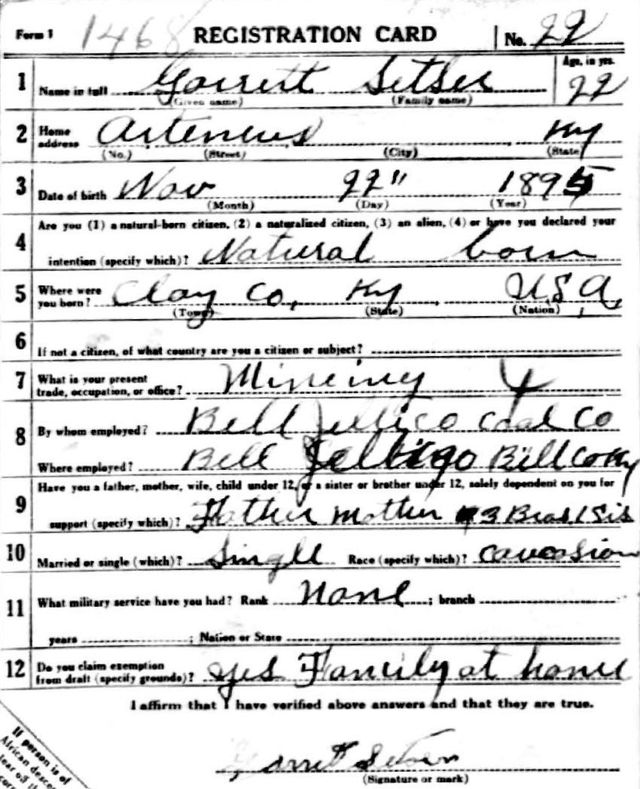 Form 1 1468 REGISTRATION CARD No. 22
1 Name in full Garrett Setser Age, in yrs. 22
(Given name) (Family name)
2 Home address Artemus Ky
(No.) (Street) (City) (State)
3 Date of birth Nov 22" 1895
(Month) (Day) (Year)
4 Are you (1) a natural-born citizen, (2) a naturalized citizen, (3) an alien, (4) or have you declared your
intention (specify which)? Natural born
5 Where were you born? Clay Co, Ky U.S.A.
(Town) (State) (Nation)
6 If not a citizen, of what country are you a citizen or subject?
7 What is your present trade, occupation, or office? Mineing 4
8 By whom employed? Bell Jellico Coal Co
Where employed? Bell Jellico Bell Co Ky
9 Have you a father, mother, wife, child under 12, or a sister or brother under 12, solely dependent on you for
support (specify which)? Father Mother 3 Bros 1 Sis
10 Married or single (which)? Single Race (specify which)? Caucasion
11 What military service have you had? Rank None ; branch
years ; Nation or State
12 Do you claim exemption from draft (specify grounds)? Yes Family at home
I affirm that I have verified above answers and that they are true.
Garrett Setser
(Signature or mark)
If person is of
African desce
tear off th
cor